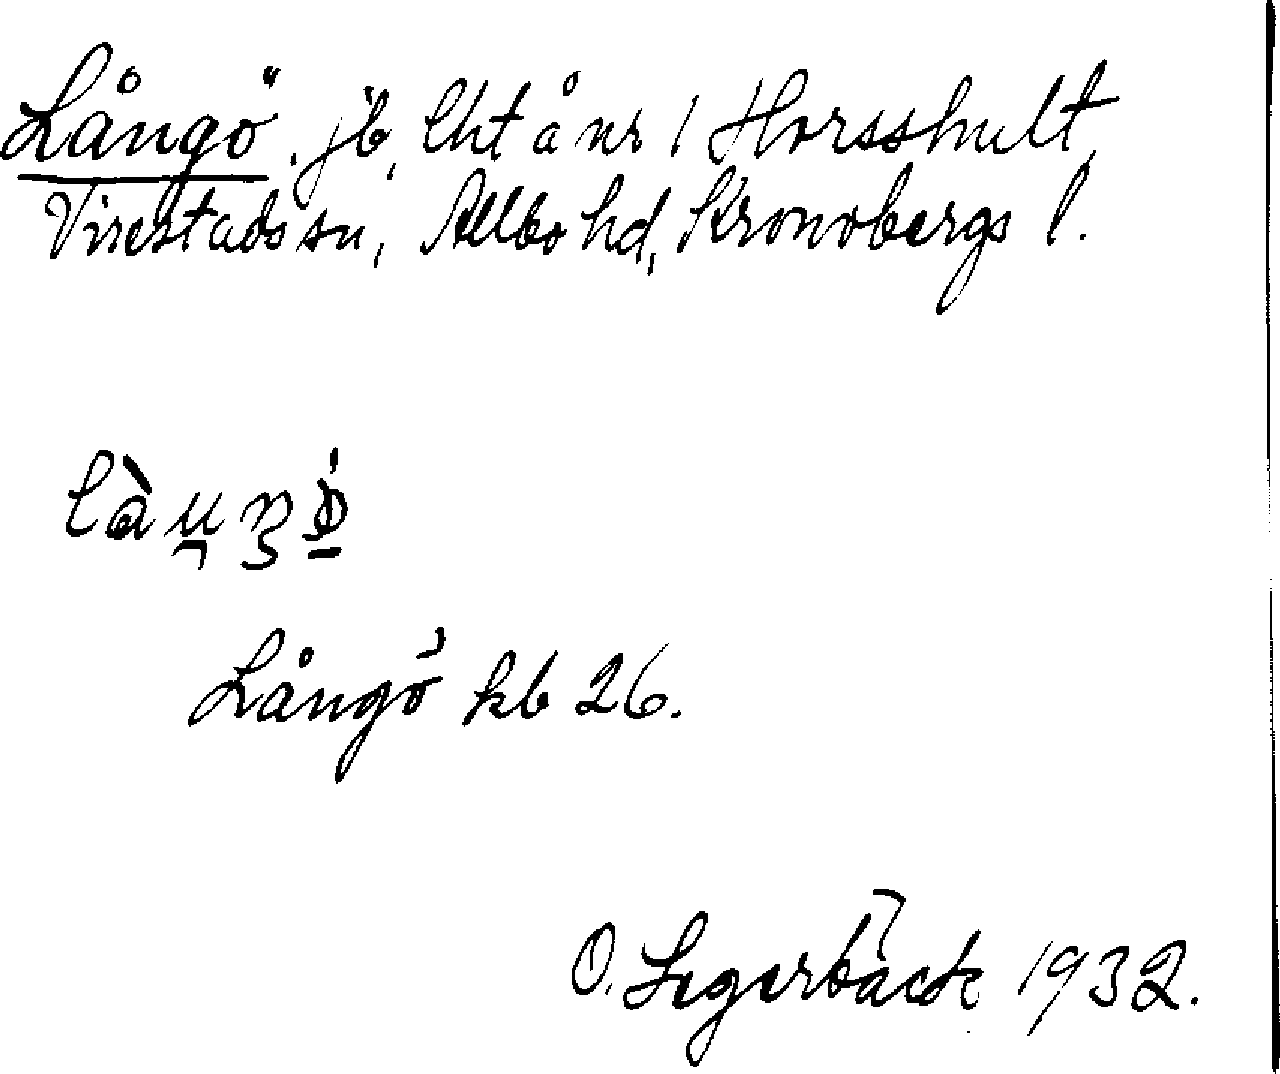 Långö. jb, lht å nr 1 Horsshult,
Virestads sn, Allbo hd, Kronobergs l.
Långö kb 26.
O. Segerbäck 1932.